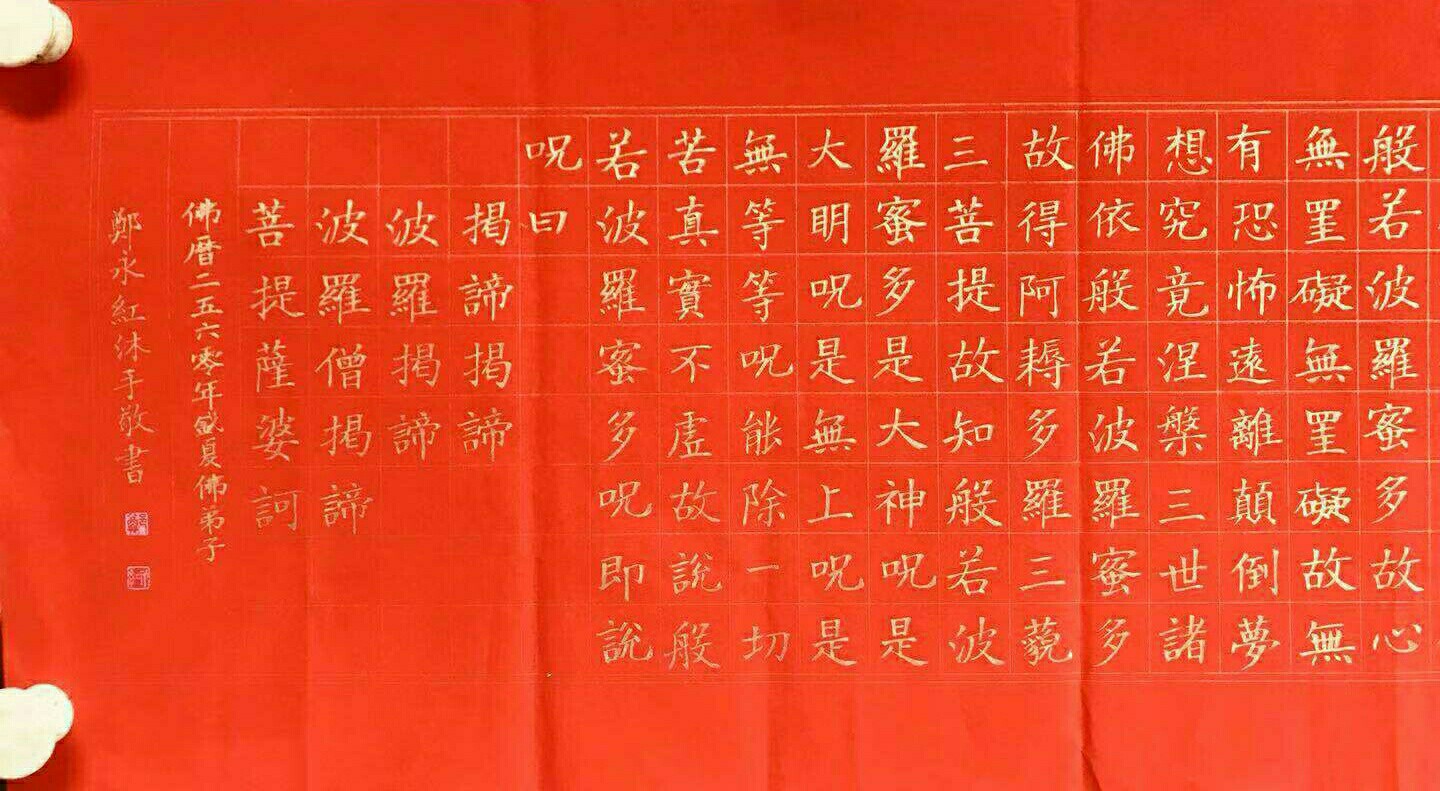 般若波羅蜜多故心
無罣礙無罣礙故無
有恐怖遠離顛倒夢
想究竟涅槃三世諸
佛依般若波羅蜜多
故得阿耨多羅三藐
三菩提故知般若波
羅蜜多是大神呪是
大明呪是無上呪是
無等等呪能除一切
苦真實不虛故說般
若波羅蜜多呪即說
呪曰
揭諦揭諦
波羅揭諦
波羅僧揭諦
菩提薩婆訶
佛曆二五六零年盛夏佛弟子
鄭永紅沐手敬書